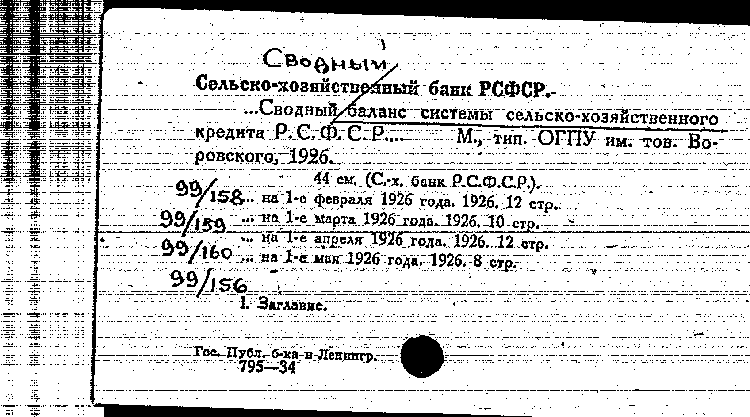 Сводный
Сельско-хозяйственный банк РСФСР.-
...Сводный баланс системы сельско-хозяйственного
кредита Р.С.Ф.С.Р.... М., тип. ОГПУ им. тов. Во-
ровского, 1926.
44 см. (С.-х. банк Р.С.Ф.С.Р.).
99/158 ... на 1-е февраля 1926 года. 1926. 12 стр.
99/159 ... на 1-е марта 1926 года. 1926. 10 стр.
... на 1-е апреля 1926 года. 1926. 12 стр.
99/160 ... на 1-е мая 1926 года. 1926. 8 стр.
99/156
1. Заглавие.
Гос. Публ. б-ка в Ленингр.
795—34